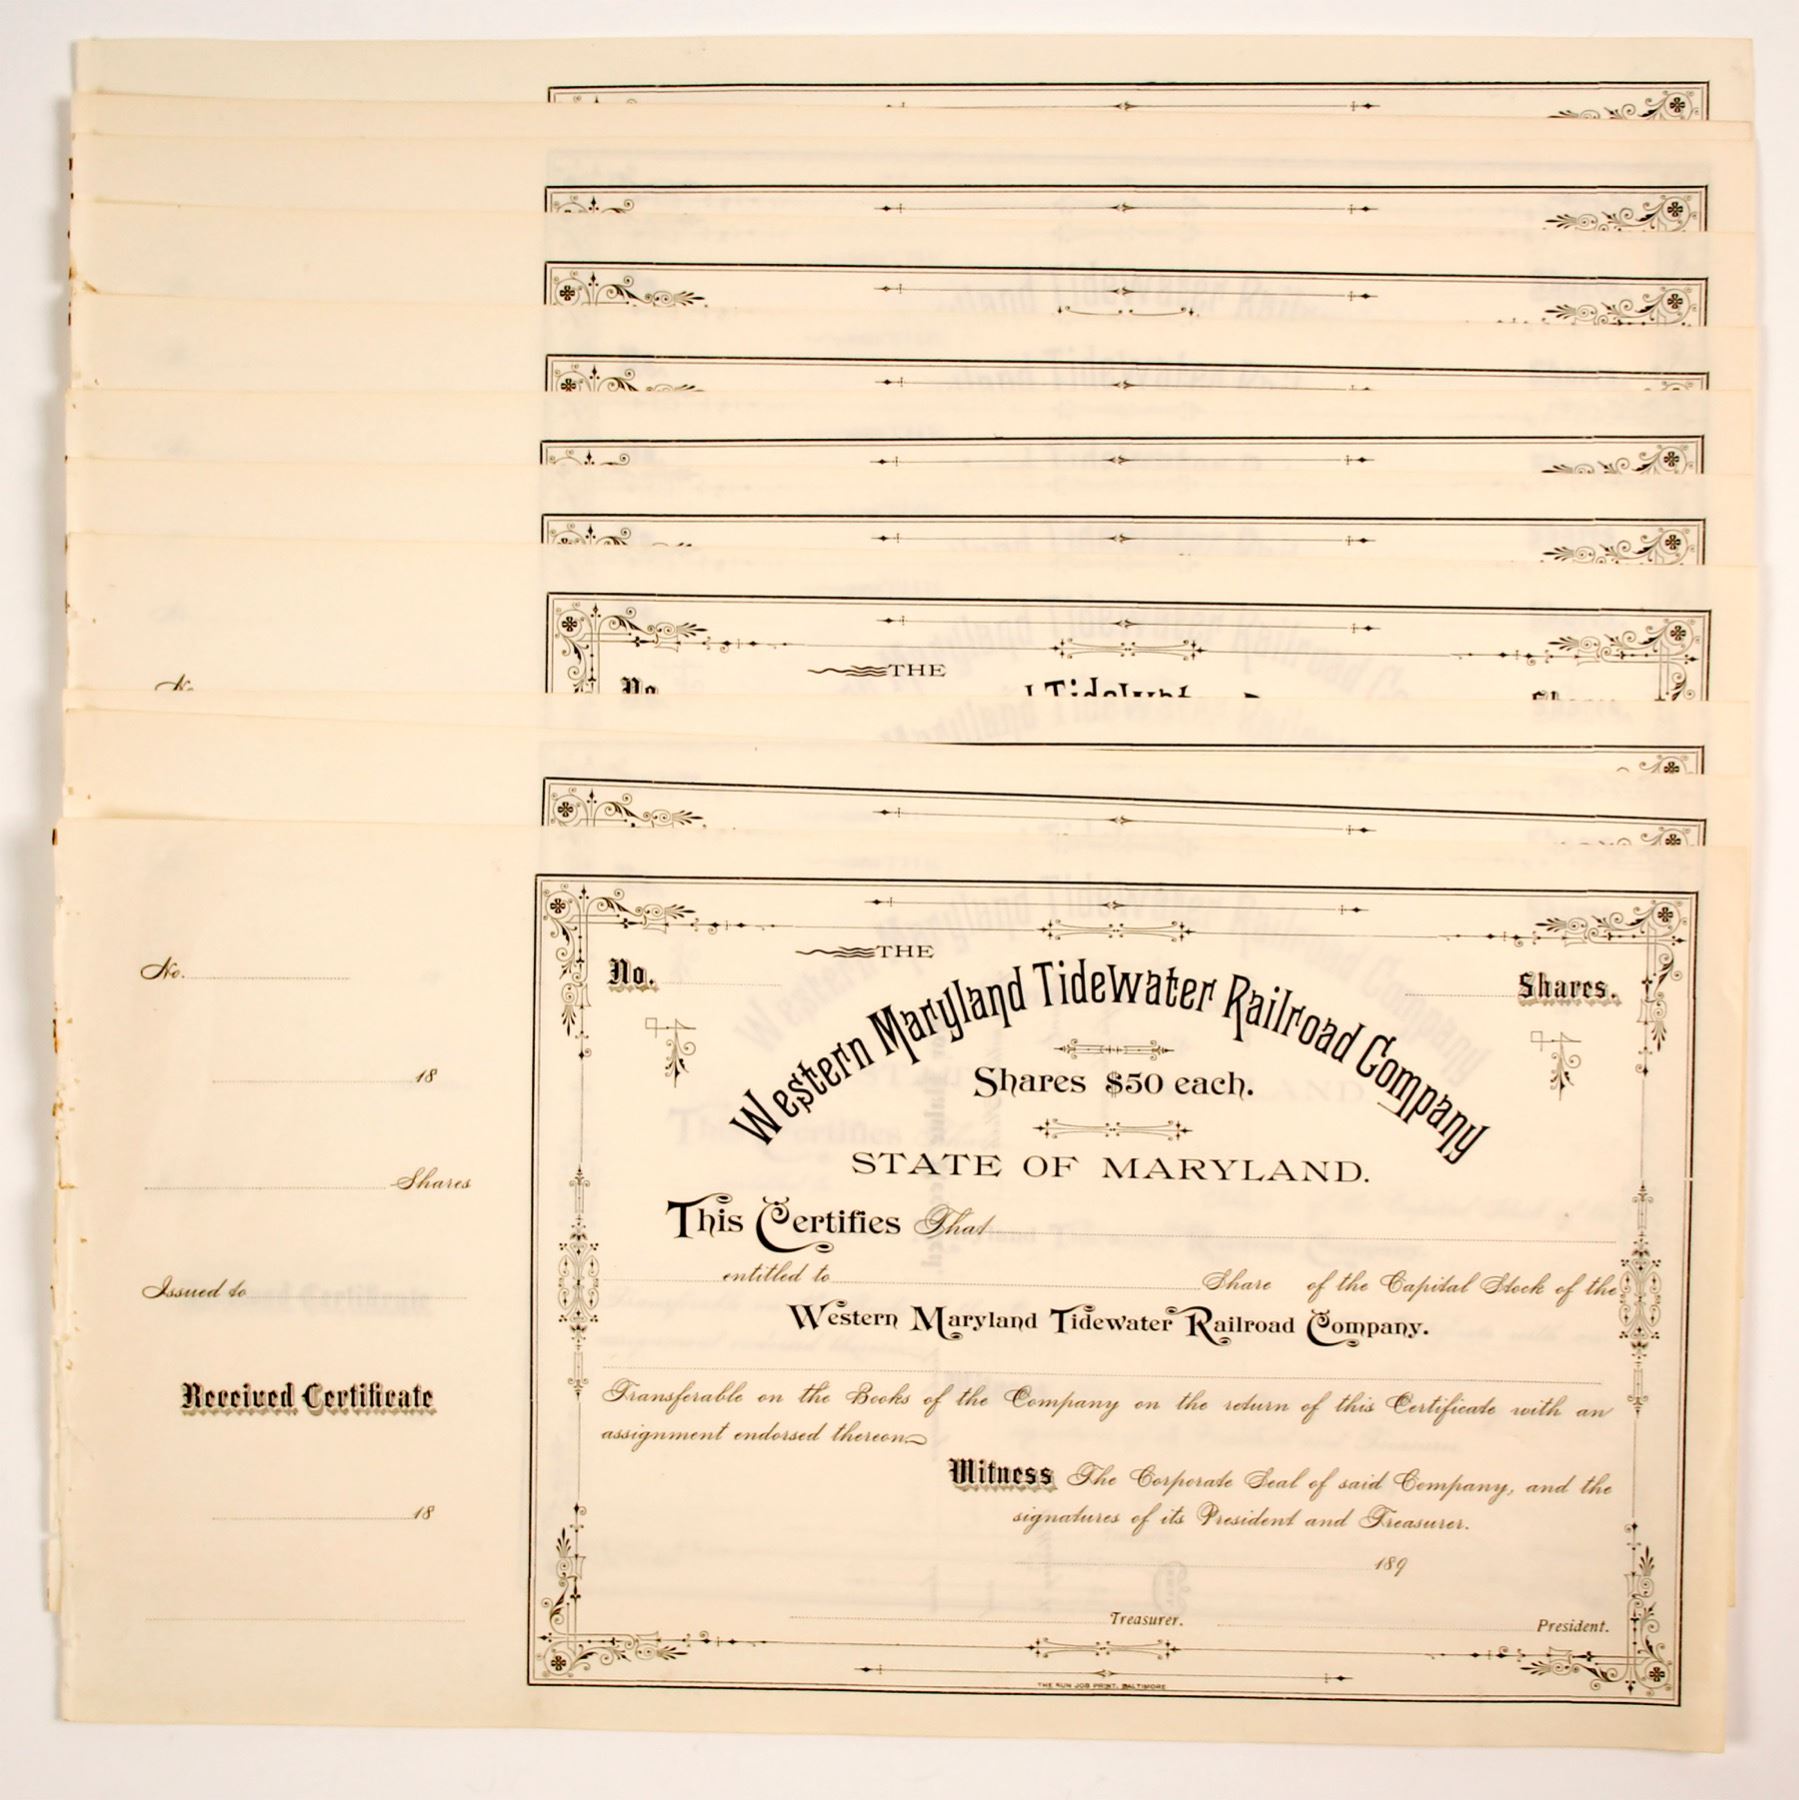 No.
THE
No.
Shares.
No.
THE
No.
Shares.
Western Maryland Tidewater Railroad Company
Shares $50 each.
STATE OF MARYLAND.
This Certifies That
entitled to Share of the Capital Stock of the
Western Maryland Tidewater Railroad Company.
Transferable on the Books of the Company on the return of this Certificate with an
assignment endorsed thereon
Witness The Corporate Seal of said Company, and the
signatures of its President and Treasurer.
189
Treasurer. President.
THE SUN JOB PRINT, BALTIMORE
18
Shares
Issued to
Received Certificate
18